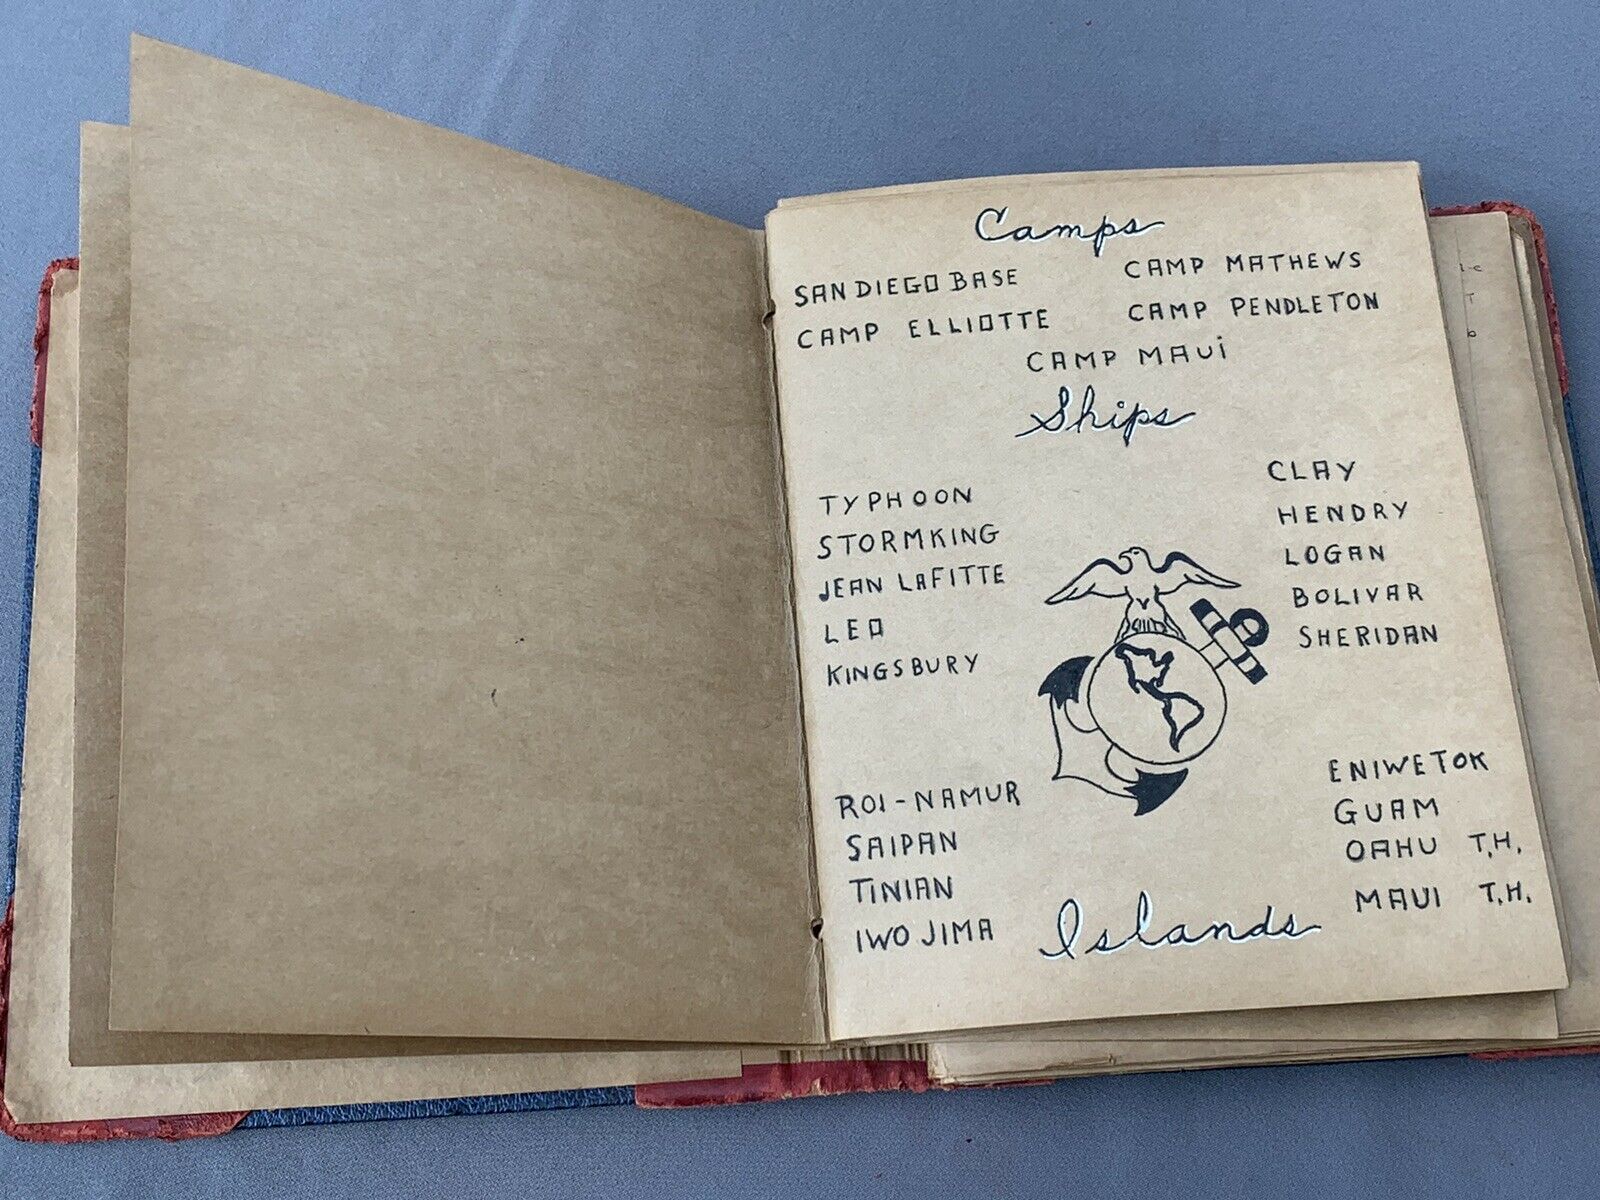 Camps
SAN DIEGO BASE CAMP MATHEWS
CAMP ELLIOTTE CAMP PENDLETON
CAMP MAUi
Ships
TYPHOON
STORMKING
JEAN LAFITTE
LEO
KINGSBURY
CLAY
HENDRY
LOGAN
BOLIVAR
SHERIDAN
ROI-NAMUR
SAIPAN
TINIAN
IWO JIMA
ENIWETOK
GUAM
OAHU T.H.
MAUI T.H.
Islands